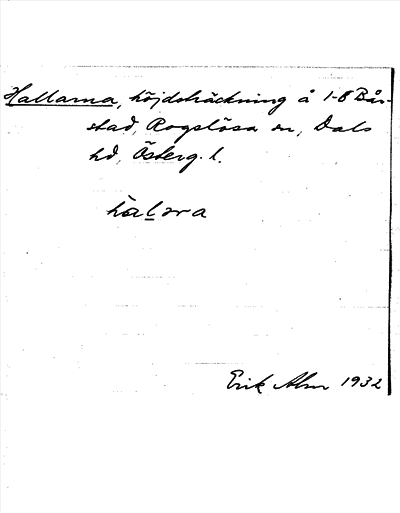 Hallarna, höjdsträckning å 1-8 Bår-
stad, Rogslösa sn, Dals
hd, Österg. l.
hàlꭇa
Erik Alm 1932